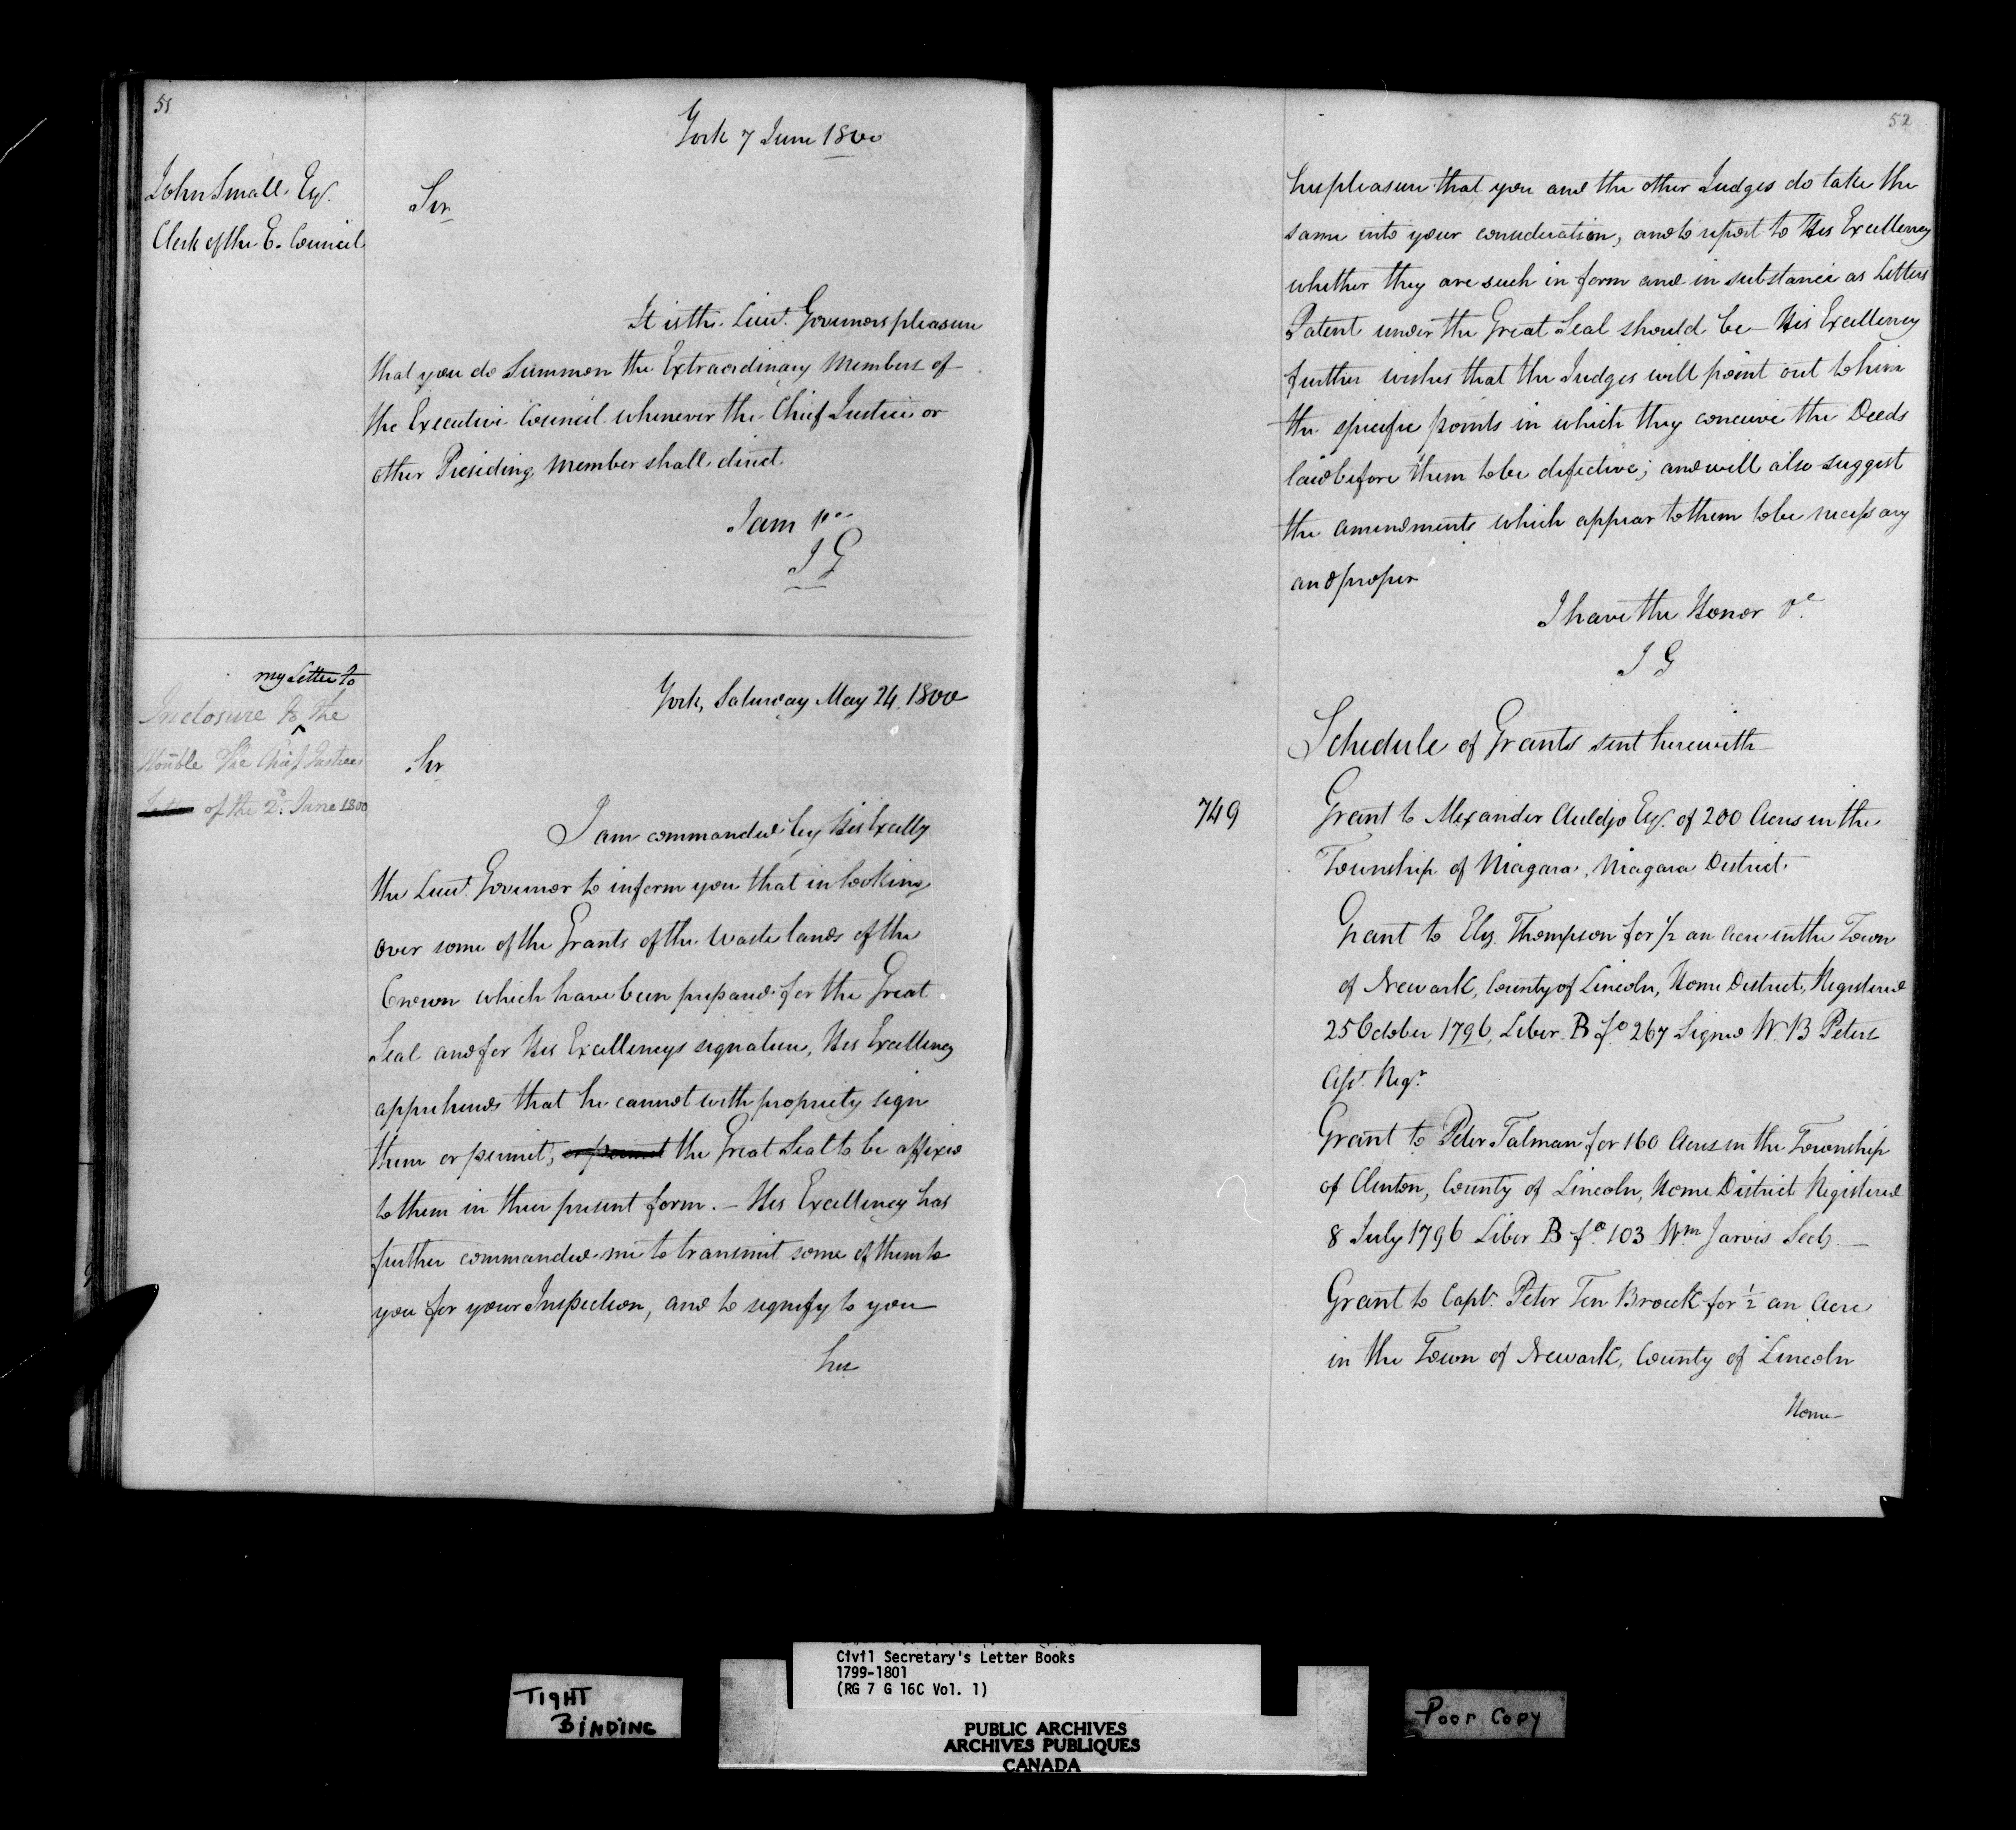 51
York 7 June 1800
John Small Esqr.
Clerk of the E. Council
Sir
It is the Lieut. Governors pleasure
that you do Summon the Extraordinary Members of
the Executive Council whenever the Chief Justice or
other Presiding Member shall direct.
I am &ca.
J G
my Letter to
Inclosure to the
Honble The Chief Justices
Letter of the 2d. June 1800
York, Saturday May 24. 1800
Sir
I am commanded by His Excelly
the Lieut. Governor to inform you that in looking
over some of the Grants of the Waste lands of the
Crown which have been prepared for the Great
Seal and for His Excellencys signature, His Excellency
apprehends that he cannot with propriety sign
them or permit, or permit the Great Seal to be affixed
to them in their present form. – His Excellency has
further commanded me to transmit some of them to
you for your Inspection, and to signify to you
his
52
his pleasure that you and the other Judges do take the
same into your consideration, and to report to His Excellency
whether they are such in form and in substance as Letters
Patent under the Great Seal should be – His Excellency
further wishes that the Judges will point out to him
the specific points in which they conceive the Deeds
laid before them to be defective; and will also suggest
the amendments which appear to them to be necessary
and proper
I have the Honor &c.
J G
Schedule of Grants sent herewith
749
Grant to Alexander Auldjo Esqr. of 200 Acres in the
Township of Niagara, Niagara District.
Grant to Eliz. Thompson for 1/2 an Acre in the Town
of Newark, County of Lincoln, Home District, Registered
25 October 1796, Liber B fo. 267 Signed W. B Peters
Asst. Regr.
Grant to Peter Talman for 160 Acres in the Township
of Clinton, County of Lincoln, Home District Registered
8 July 1796 Liber B fo. 103 Wm Jarvis Secy. –
Grant to Capt. Peter Ten Broeck for 1/2 an Acre
in the Town of Newark, County of Lincoln
Home
TIGHT
BINDING
Civil Secretary's Letter Books
1799-1801
(RG 7 G 16C Vol. 1)
PUBLIC ARCHIVES
ARCHIVES PUBLIQUES
CANADA
Poor Copy